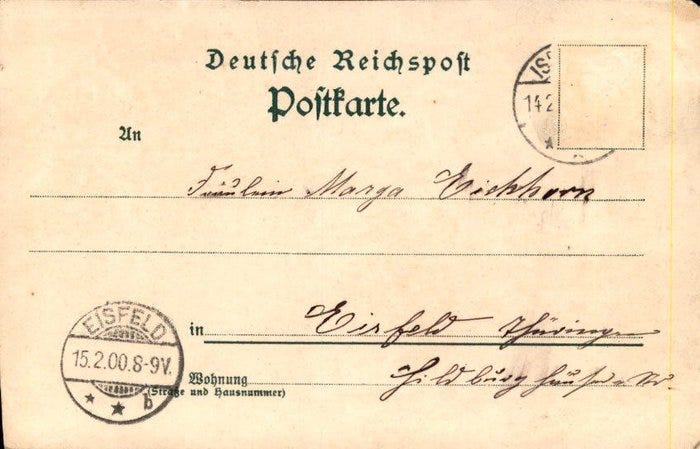 Deutsche Reichspost
Postkarte.
An
Fräulein Marga Eichhorn
in Eisfeld Thüringen
Wohnung Hildburghäuser Str.
(Straße und Hausnummer)
EISFELD
15.2.00.8-9V.
* * b
14 2